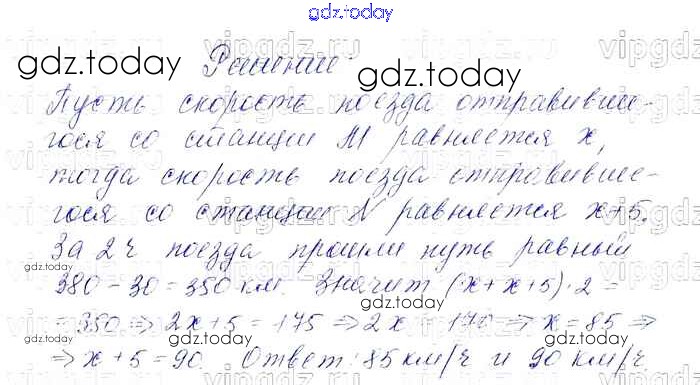 gdz.today
Решение
gdz.today
gdz.today
Пусть скорость поезда отправивше-
гося со станции М равняется x,
тогда скорость поезда отправивше-
гося со станции N равняется x+5.
За 2ч поезда прошли путь равный
gdz.today
380 - 30 = 350 км. Значит (x + x + 5) · 2 =
gdz.today
= 350 => 2x + 5 = 175 => 2x = 170 => x = 85 =>
=> x + 5 = 90. Ответ: 85 км/ч и 90 км/ч
gdz.today